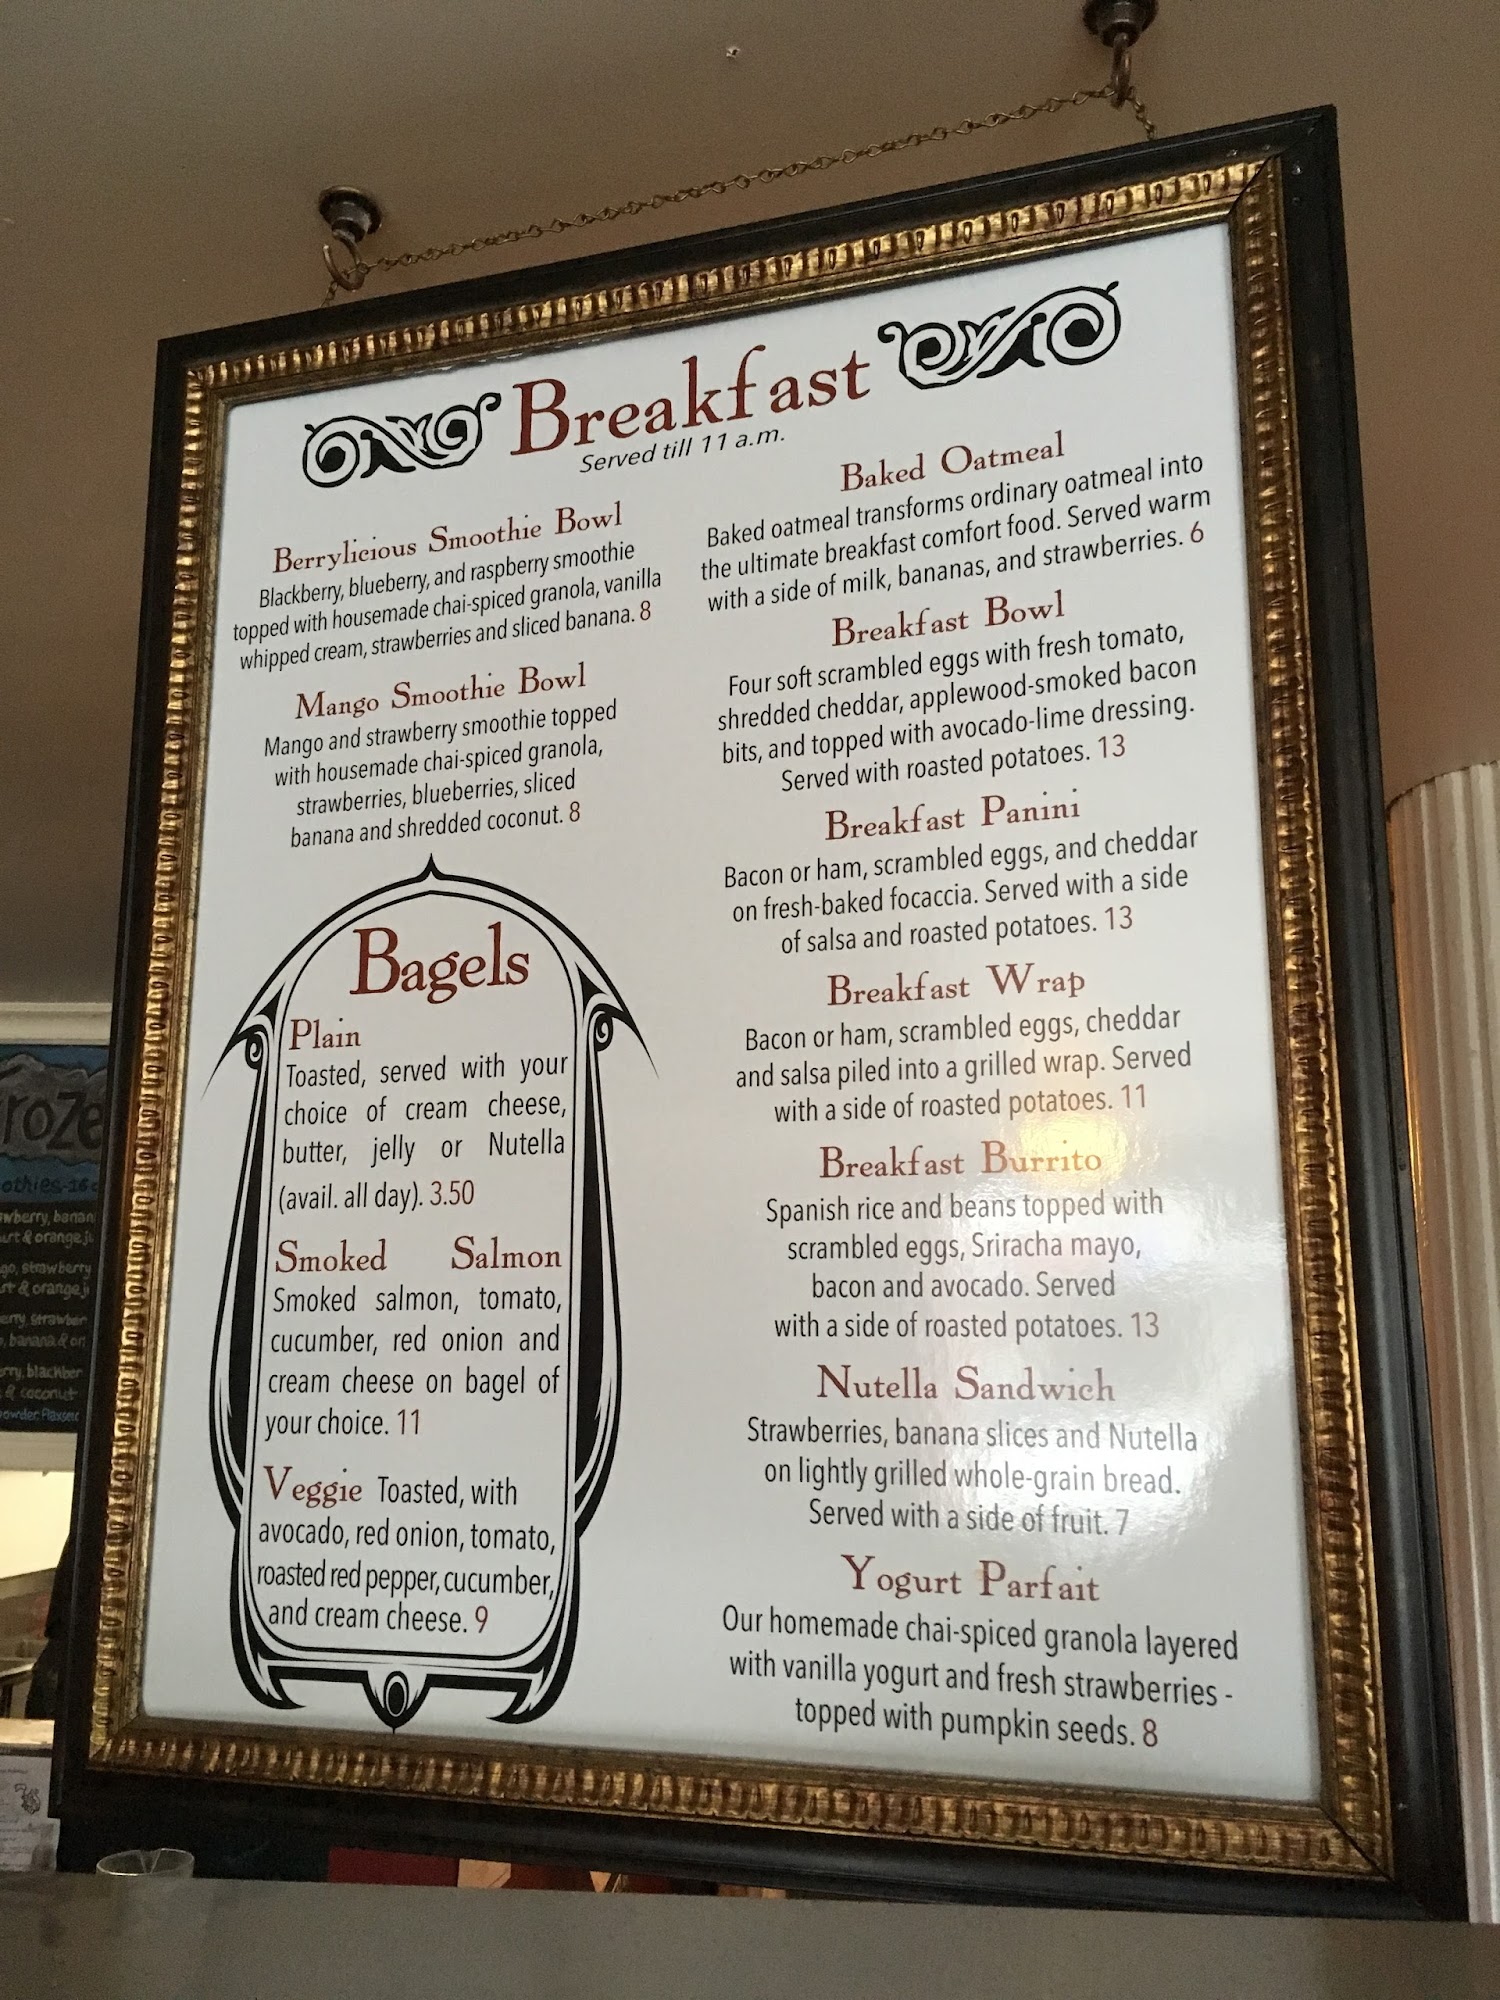 Breakfast
Served till 11 a.m.
Berrylicious Smoothie Bowl
Blackberry, blueberry, and raspberry smoothie
topped with housemade chai-spiced granola, vanilla
whipped cream, strawberries and sliced banana. 8
Mango Smoothie Bowl
Mango and strawberry smoothie topped
with housemade chai-spiced granola,
strawberries, blueberries, sliced
banana and shredded coconut. 8
Bagels
Plain
Toasted, served with your
choice of cream cheese,
butter, jelly or Nutella
(avail. all day). 3.50
Smoked Salmon
Smoked salmon, tomato,
cucumber, red onion and
cream cheese on bagel of
your choice. 11
Veggie Toasted, with
avocado, red onion, tomato,
roasted red pepper, cucumber,
and cream cheese. 9
Baked Oatmeal
Baked oatmeal transforms ordinary oatmeal into
the ultimate breakfast comfort food. Served warm
with a side of milk, bananas, and strawberries. 6
Breakfast Bowl
Four soft scrambled eggs with fresh tomato,
shredded cheddar, applewood-smoked bacon
bits, and topped with avocado-lime dressing.
Served with roasted potatoes. 13
Breakfast Panini
Bacon or ham, scrambled eggs, and cheddar
on fresh-baked focaccia. Served with a side
of salsa and roasted potatoes. 13
Breakfast Wrap
Bacon or ham, scrambled eggs, cheddar
and salsa piled into a grilled wrap. Served
with a side of roasted potatoes. 11
Breakfast Burrito
Spanish rice and beans topped with
scrambled eggs, Sriracha mayo,
bacon and avocado. Served
with a side of roasted potatoes. 13
Nutella Sandwich
Strawberries, banana slices and Nutella
on lightly grilled whole-grain bread.
Served with a side of fruit. 7
Yogurt Parfait
Our homemade chai-spiced granola layered
with vanilla yogurt and fresh strawberries -
topped with pumpkin seeds. 8
& orange
strawberry
& orange
banana &
& coconut